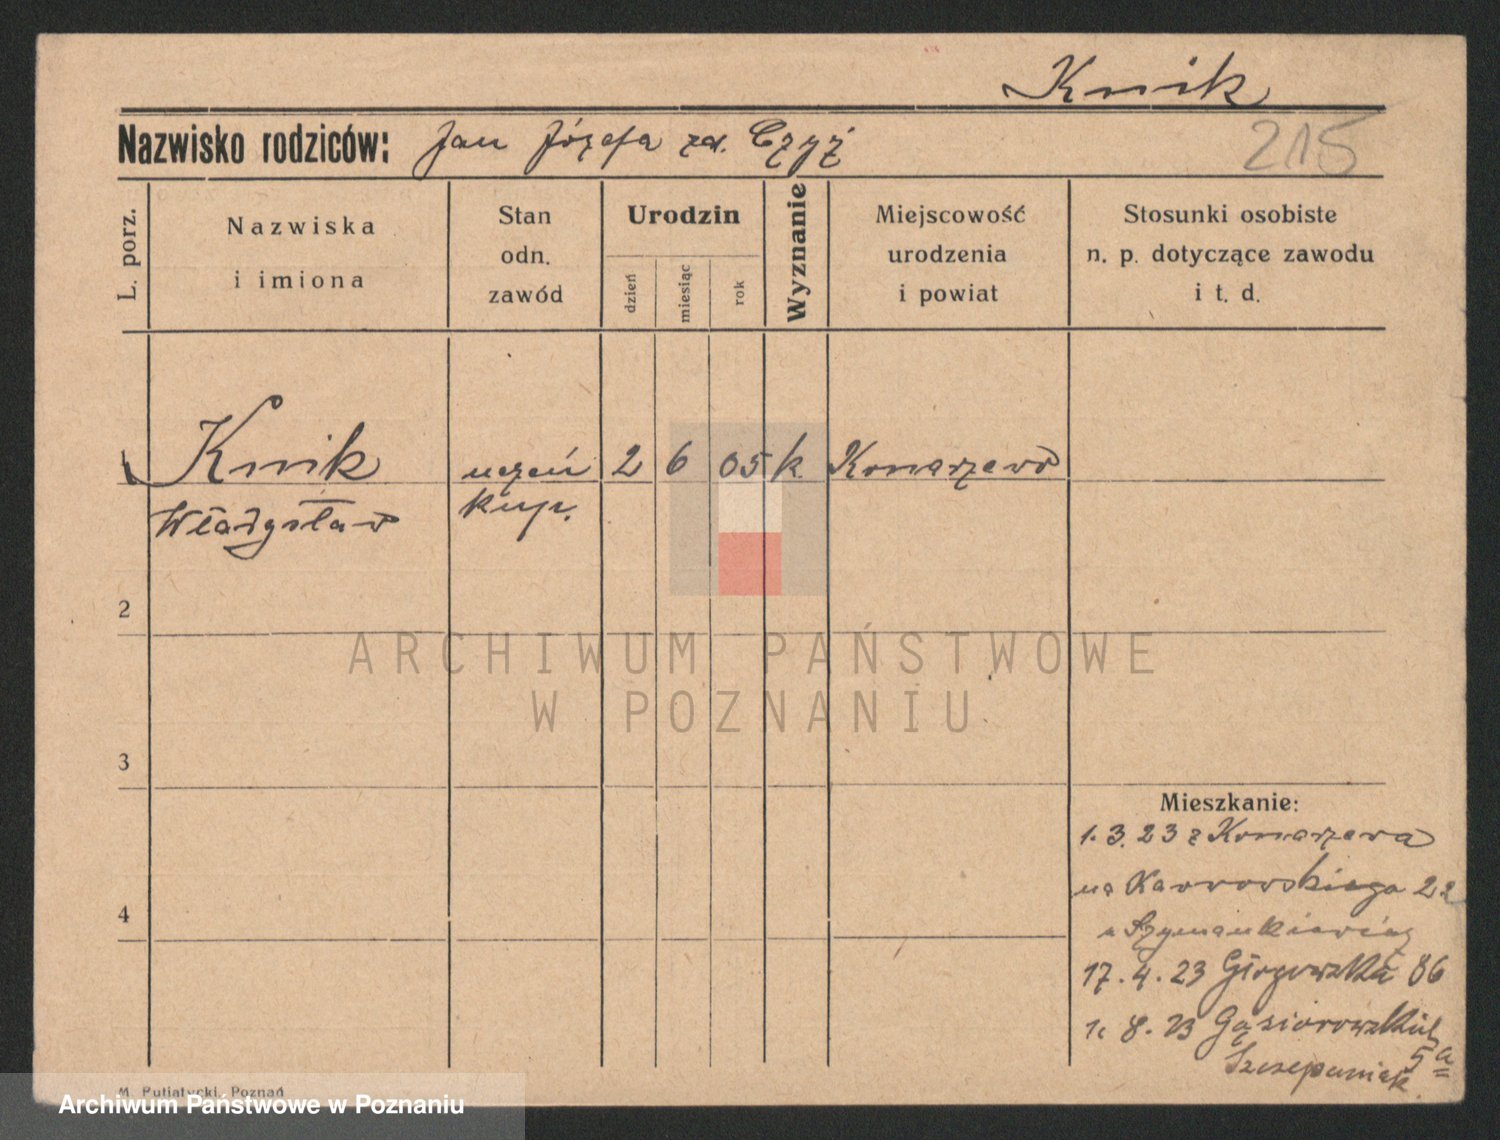 Kmik
Nazwisko rodziców: Jan Józefa zd. Czyż
215
L. porz.
Nazwiska
i imiona
Stan
odn.
zawód
Urodzin
dzień
miesiąc
rok
Wyznanie
Miejscowość
urodzenia
i powiat
Stosunki osobiste
n. p. dotyczące zawodu
i t. d.
1 Kmik uczeń 2 6 05 k. Konarzewo
Władysław kup.
2
ARCHIWUM PAŃSTWOWE
W POZNANIU
3
Mieszkanie:
1. 3. 23 z Konarzewa
na Karwowskiego 22
u Szymankiewicz
17. 4. 23 Głogowska 86
1. 8. 23 Gąsiorowskich
5a
Szczepaniak
4
M. Putiatycki, Poznań
Archiwum Państwowe w Poznaniu